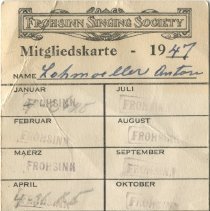 FROHSINN SINGING SOCIETY
Mitgliedskarte - 1947
NAME Lohmoeller Anton
JANUAR JULI
FROHSINN FROHSINN
FEBRUAR AUGUST
FROHSINN FROHSINN
MAERZ SEPTEMBER
FROHSINN FROHSINN
APRIL OKTOBER